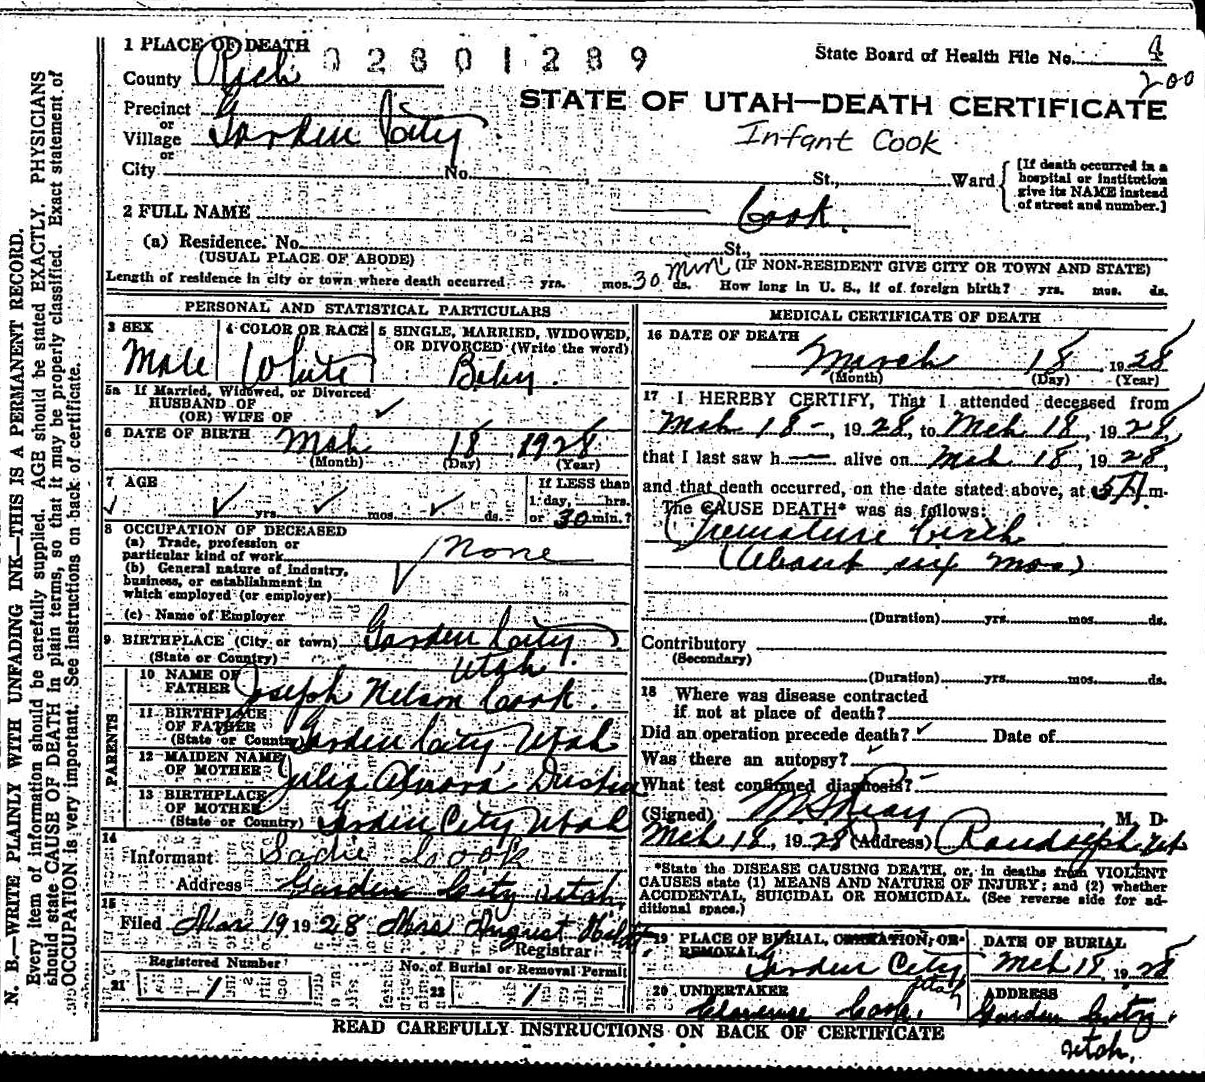 1 PLACE OF DEATH
02801289
State Board of Health File No. 4
200
County Rich
Precinct
or
Village Garden City
or
City No. St., Ward
STATE OF UTAH—DEATH CERTIFICATE
Infant Cook
[If death occurred in a hospital or institution give its NAME instead of street and number.]
2 FULL NAME Cook.
(a) Residence. No. St.,
(USUAL PLACE OF ABODE) (IF NON-RESIDENT GIVE CITY OR TOWN AND STATE)
Length of residence in city or town where death occurred yrs. mos. 30 min ds. How long in U. S., if of foreign birth? yrs. mos. ds.
PERSONAL AND STATISTICAL PARTICULARS
3 SEX
Male
4 COLOR OR RACE
White
5 SINGLE, MARRIED, WIDOWED,
OR DIVORCED (Write the word)
Baby.
5a If Married, Widowed, or Divorced
HUSBAND OF
(OR) WIFE OF
6 DATE OF BIRTH Mch 18 1928
(Month) (Day) (Year)
7 AGE
yrs. mos. ds.
If LESS than
1 day, hrs.
or 30 min.?
8 OCCUPATION OF DECEASED
(a) Trade, profession or
particular kind of work None
(b) General nature of industry,
business, or establishment in
which employed (or employer)
(c) Name of Employer
9 BIRTHPLACE (City or town) Garden City
(State or Country) Utah.
PARENTS
10 NAME OF
FATHER Joseph Nelson Cook.
11 BIRTHPLACE
OF FATHER
(State or Country) Garden City Utah
12 MAIDEN NAME
OF MOTHER Julia Dustin
13 BIRTHPLACE
OF MOTHER
(State or Country) Garden City Utah
14
Informant Sadie Cook
Address Garden City Utah.
15
Filed Mar 19 1928 Mrs August
Registrar
Registered Number
21 1
No. of Burial or Removal Permit
22 1
MEDICAL CERTIFICATE OF DEATH
16 DATE OF DEATH
March 18, 1928
(Month) (Day) (Year)
17 I HEREBY CERTIFY, That I attended deceased from
Mch 18 -, 1928, to Mch 18, 1928,
that I last saw h— alive on Mch 18, 1928,
and that death occurred, on the date stated above, at m.
The CAUSE DEATH* was as follows:
Premature birth
(About six mos)
(Duration) yrs. mos. ds.
Contributory
(Secondary)
(Duration) yrs. mos. ds.
18 Where was disease contracted
if not at place of death?
Did an operation precede death? Date of
Was there an autopsy?
What test confirmed diagnosis?
(Signed) M. D.
Mch 18, 1928 (Address) Randolph Ut
*State the DISEASE CAUSING DEATH, or, in deaths from VIOLENT
CAUSES state (1) MEANS AND NATURE OF INJURY; and (2) whether
ACCIDENTAL, SUICIDAL OR HOMICIDAL. (See reverse side for ad-
ditional space.)
19 PLACE OF BURIAL, CREMATION, OR
REMOVAL
Garden City Utah
DATE OF BURIAL
Mch 19, 1928
20 UNDERTAKER
Clarence Cook.
ADDRESS
Garden City,
Utah.
READ CAREFULLY INSTRUCTIONS ON BACK OF CERTIFICATE
N. B.—WRITE PLAINLY WITH UNFADING INK—THIS IS A PERMANENT RECORD.
Every item of information should be carefully supplied. AGE should be stated EXACTLY. PHYSICIANS
should state CAUSE OF DEATH in plain terms, so that it may be properly classified. Exact statement of
OCCUPATION is very important. See instructions on back of certificate.